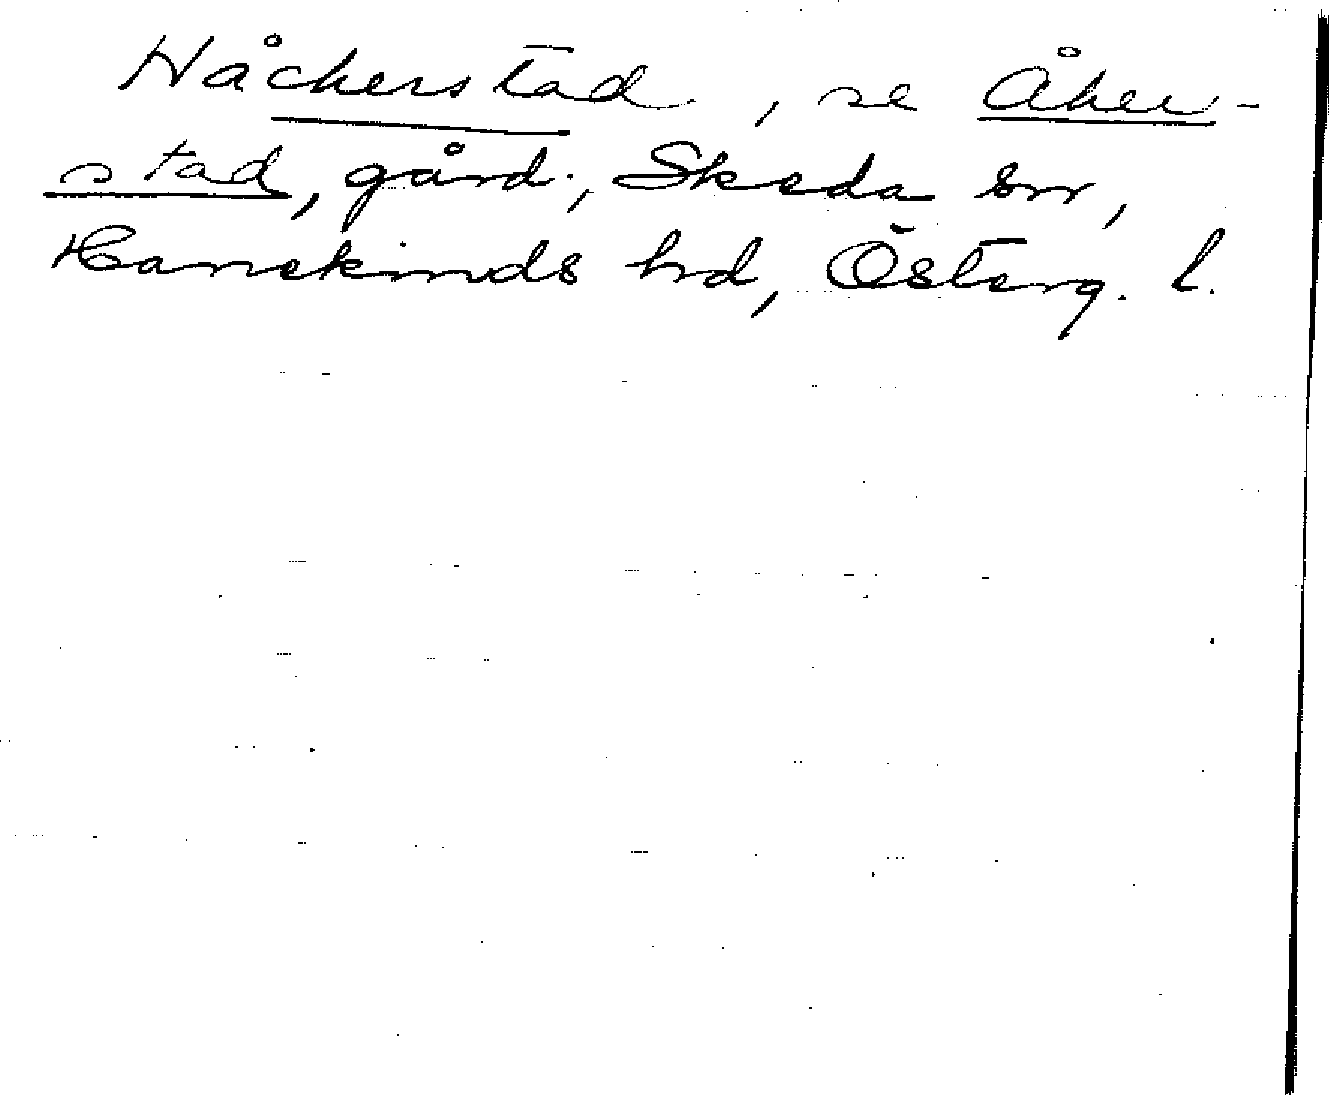 Håckerstad, se Åker-
stad, gård, Skeda sn,
Hanekinds hd, Österg. l.